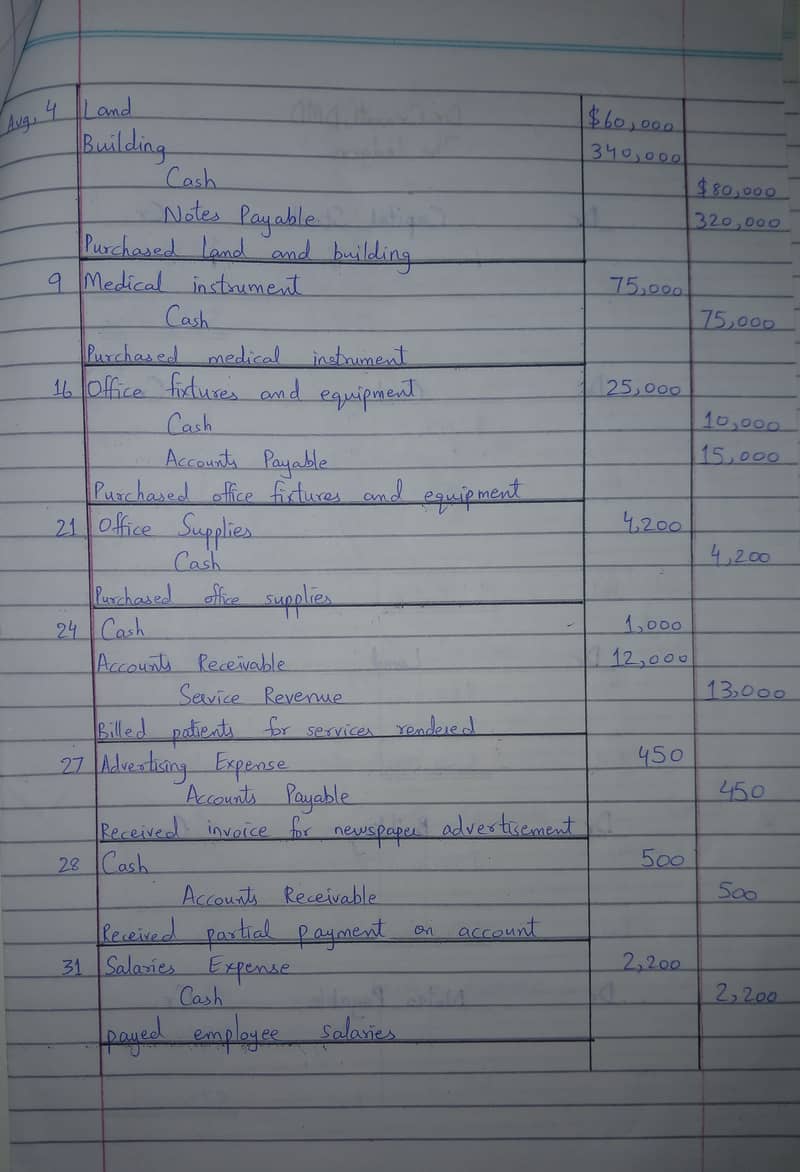 Aug. 4 Land $60,000
Building 340,000
Cash $80,000
Notes Payable 320,000
Purchased land and building
9 Medical instrument 75,000
Cash 75,000
Purchased medical instrument
16 Office fixtures and equipment 25,000
Cash 10,000
Accounts Payable 15,000
Purchased office fixtures and equipment
21 Office Supplies 4,200
Cash 4,200
Purchased office supplies
24 Cash 1,000
Accounts Receivable 12,000
Service Revenue 13,000
Billed patients for services rendered
27 Advertising Expense 450
Accounts Payable 450
Received invoice for newspaper advertisement
28 Cash 500
Accounts Receivable 500
Received partial payment on account
31 Salaries Expense 2,200
Cash 2,200
payed employee salaries